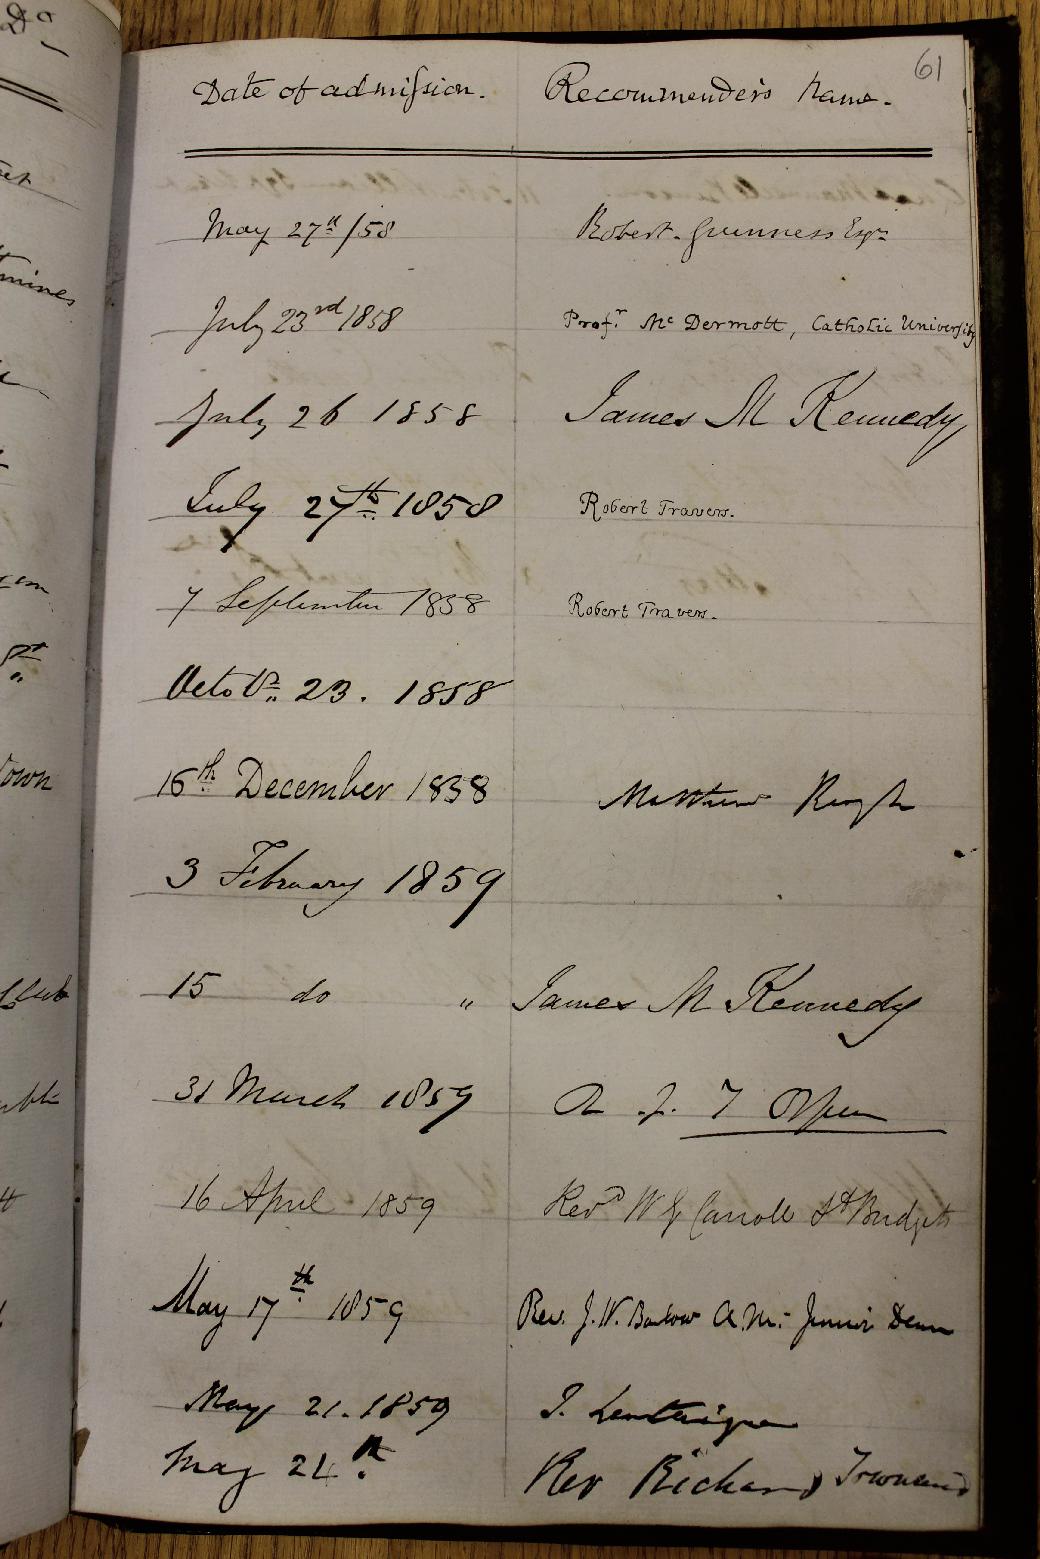 61
Date of admission. Recommender's Name.
May 27th /58 Robert Guinness Esqr
July 23rd 1858 Profr. Mc Dermott, Catholic University
July 26 1858 James M Kennedy
July 27th 1858 Robert Travers.
7 September 1858 Robert Travers.
Octobr 23. 1858
16th December 1858 Matthew Keogh
3 February 1859
15 do " James M Kennedy
31 March 1859
16 April 1859 Revd W G Carroll St Bridgets
May 17th 1859 Rev. J. W. Barlow A.M. Junior Dean
May 21. 1859 J. Lentaigne
May 24th Rev Richard Townsend